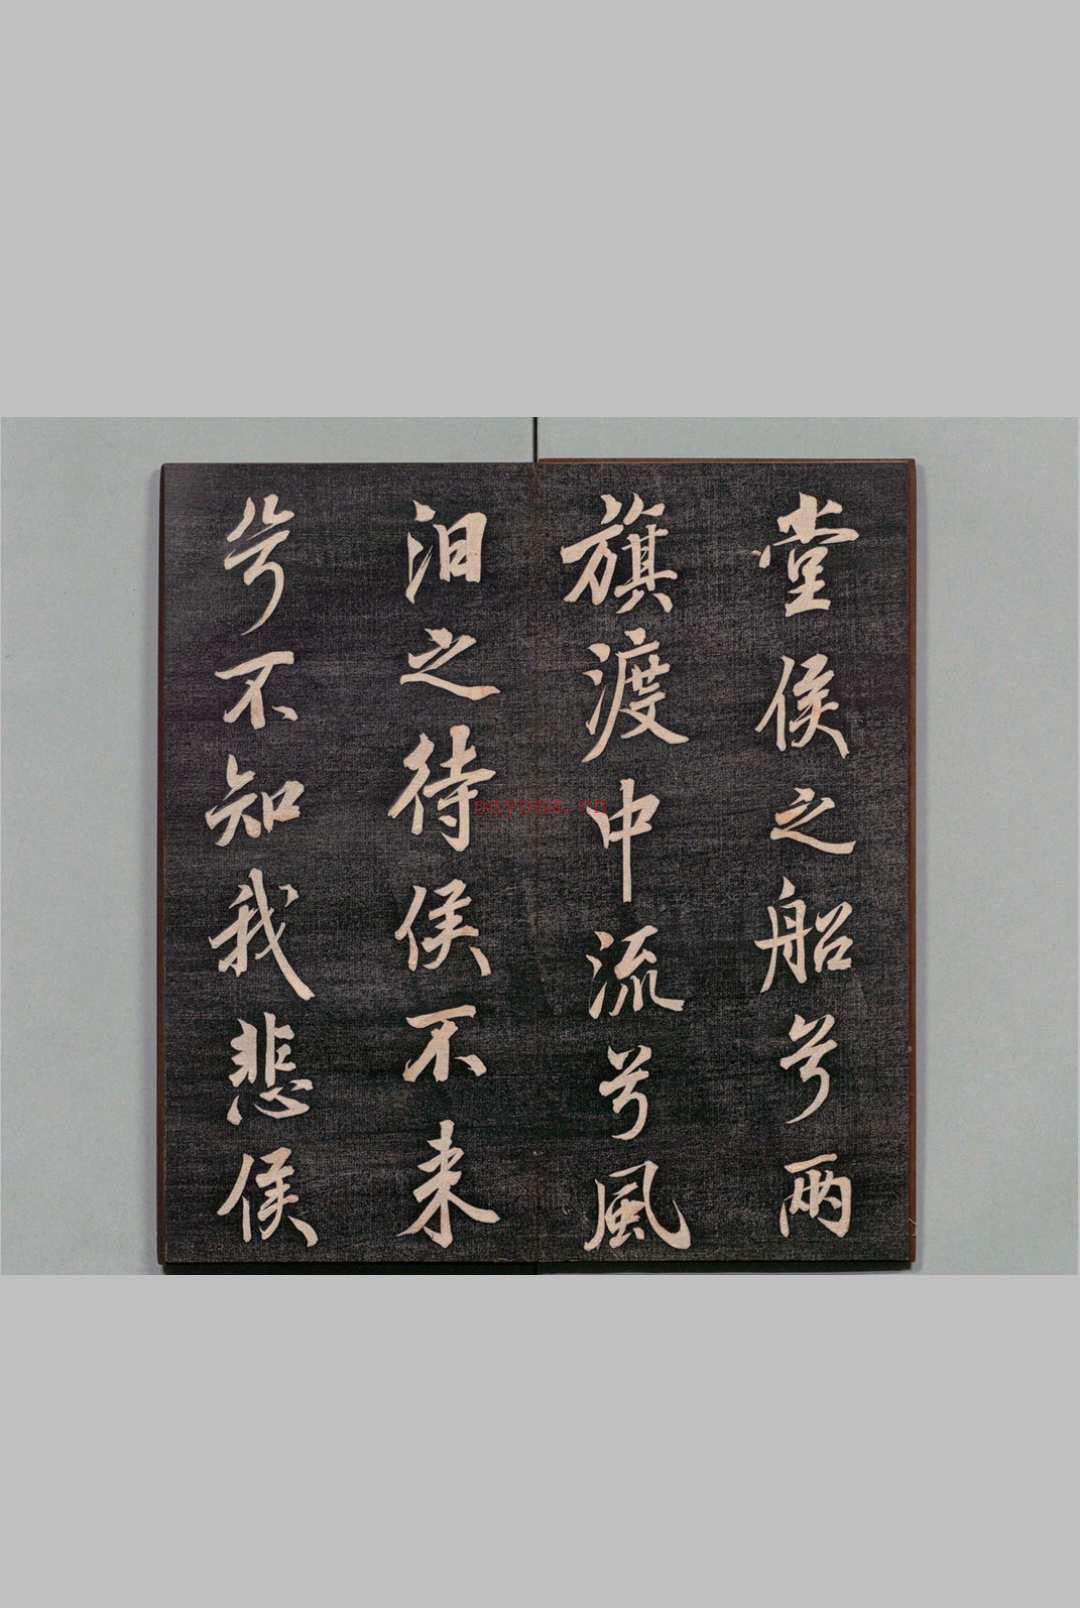 堂侯之船兮兩
旗渡中流兮風
汩之待侯不来
兮不知我悲侯
nayona.cn